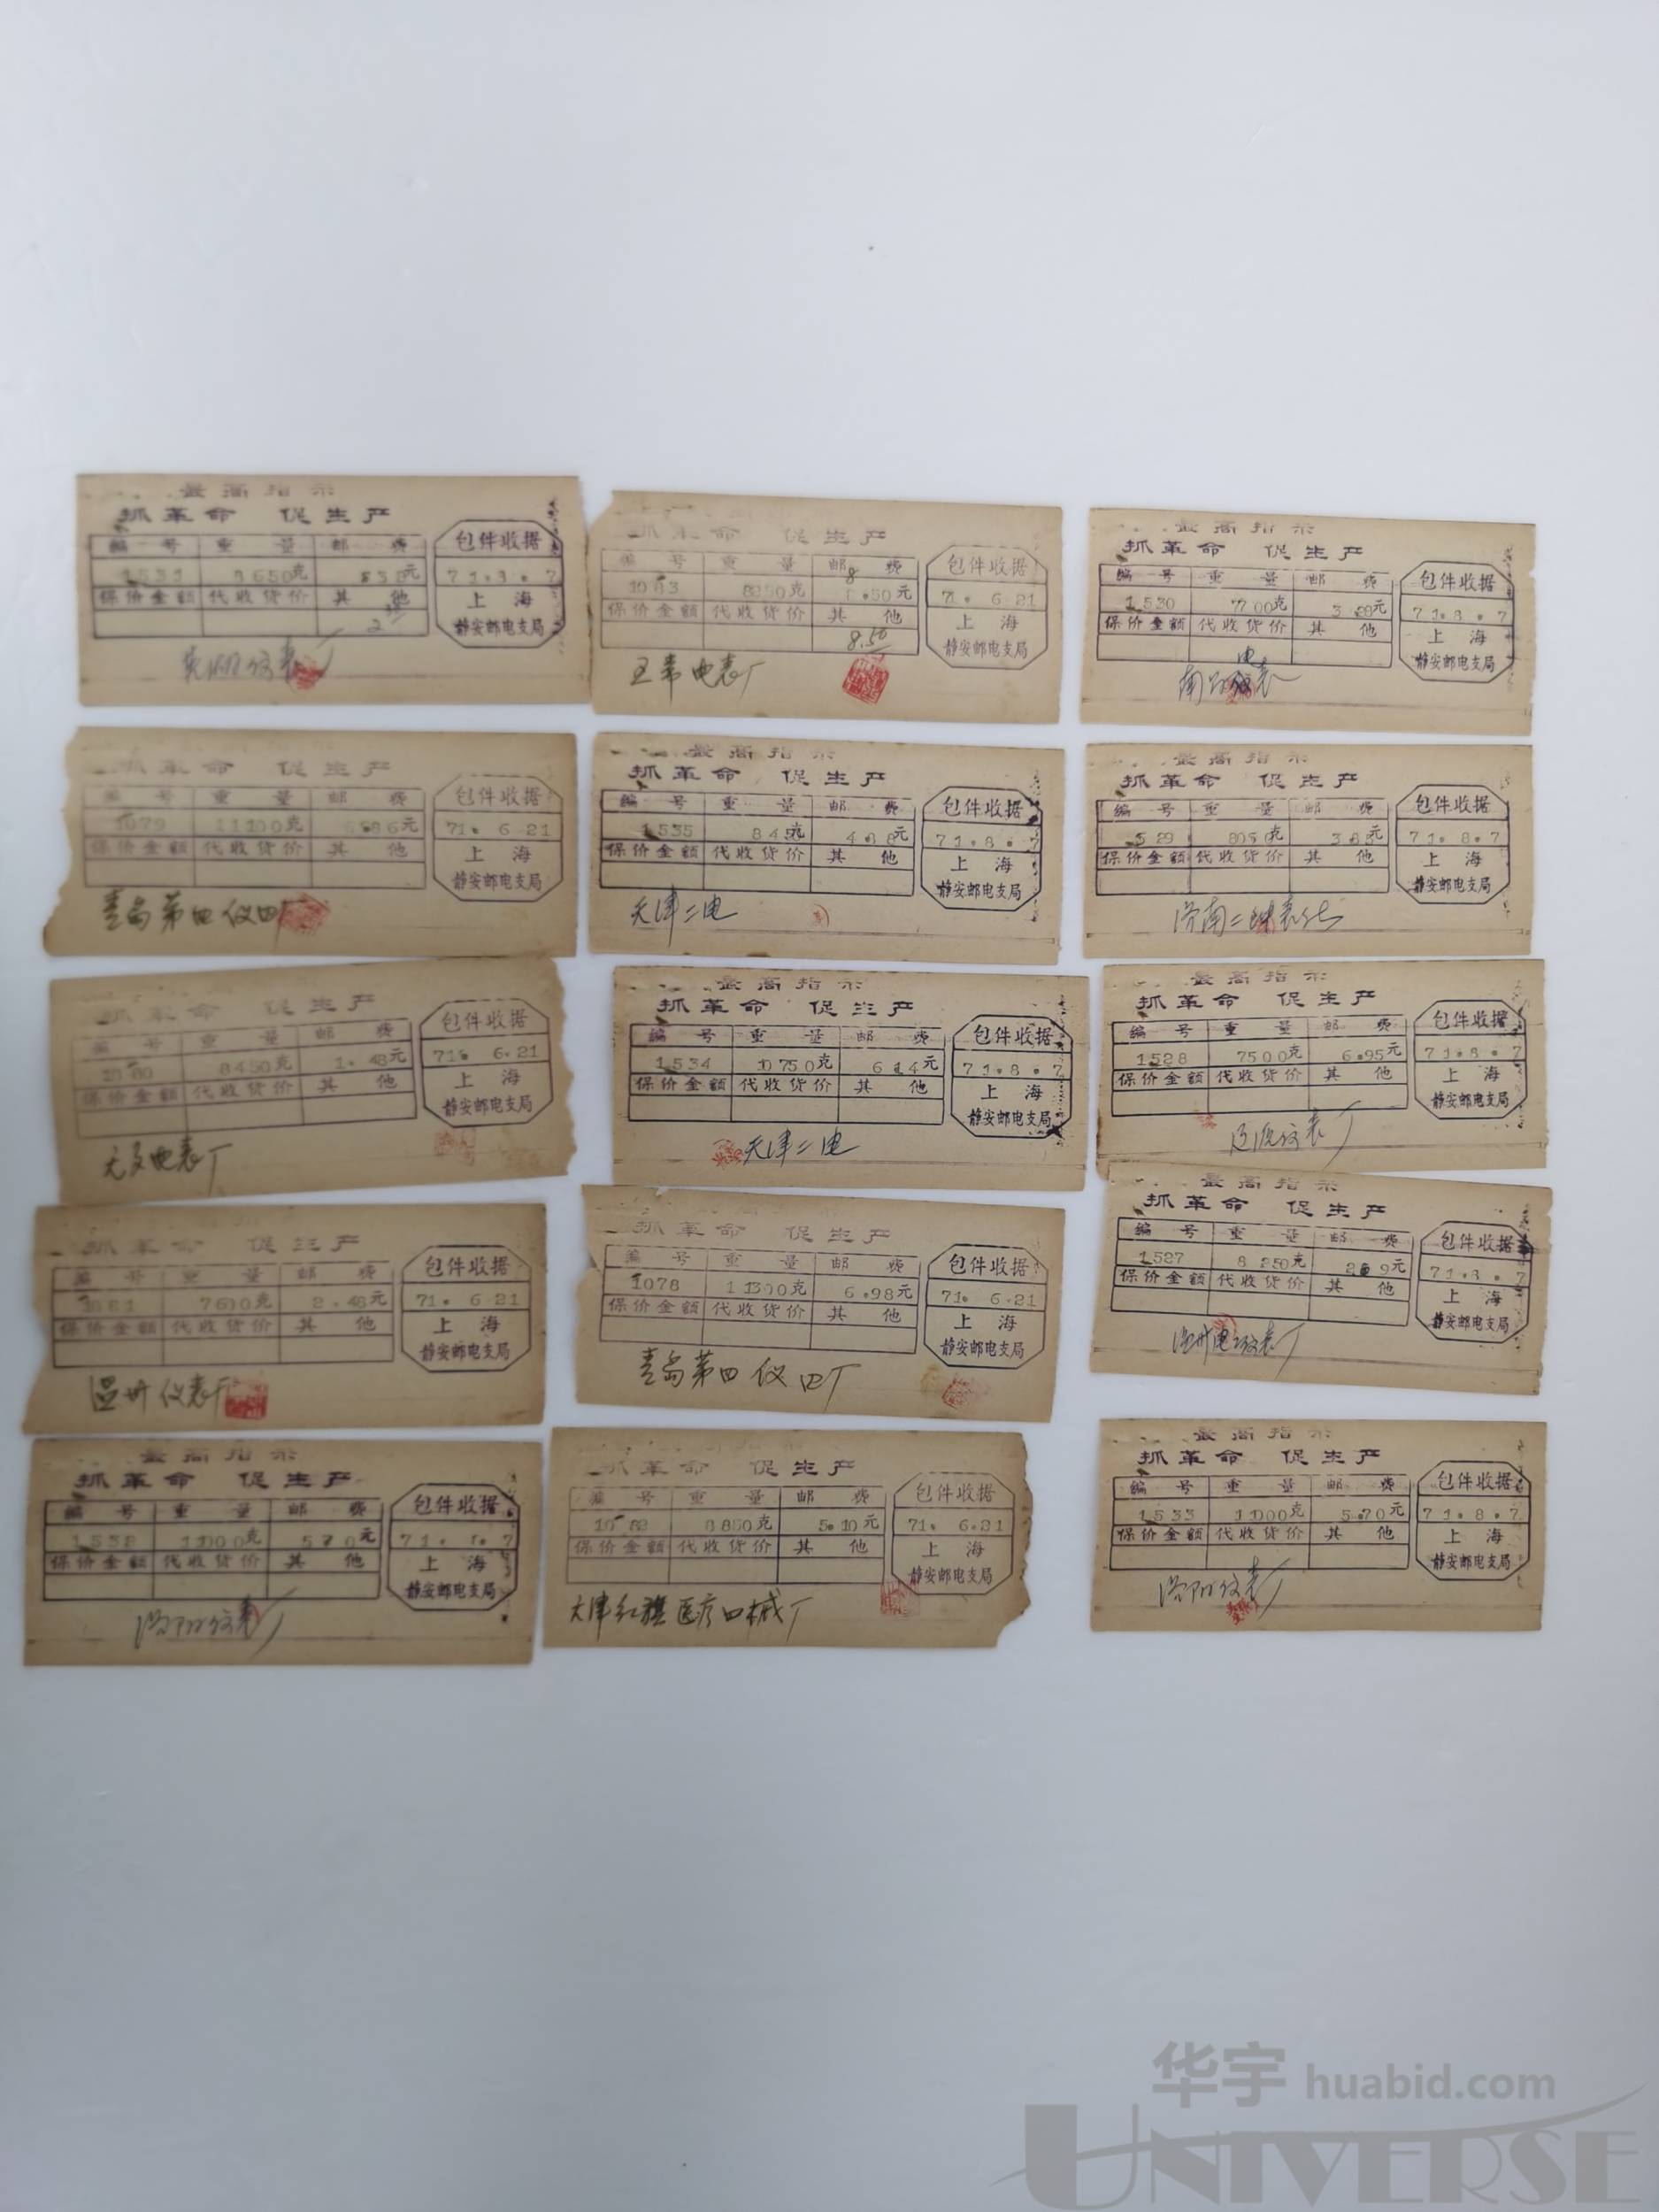 最高指示
抓革命 促生产
编号 重量 邮费
1531 9650克
保价金额 代收货价 其他
包件收据
71.8.7
上海
静安邮电支局
抓革命 促生产
编号 重量 邮费
1083 8250克 8.50元
保价金额 代收货价 其他
8.50
包件收据
71. 6 21
上海
静安邮电支局
电表厂
最高指示
抓革命 促生产
编号 重量 邮费
1530 7700克
保价金额 代收货价 其他
包件收据
71.8.7
上海
静安邮电支局
抓革命 促生产
编号 重量 邮费
1079 11100克 6.86元
保价金额 代收货价 其他
包件收据
71. 6 21
上海
静安邮电支局
青岛第四仪四厂
最高指示
抓革命 促生产
编号 重量 邮费
1535 845克
保价金额 代收货价 其他
包件收据
71.8.7
上海
静安邮电支局
天津二电
最高指示
抓革命 促生产
编号 重量 邮费
529 8050克
保价金额 代收货价 其他
包件收据
71.8.7
上海
静安邮电支局
抓革命 促生产
编号 重量 邮费
1080 8450克 1.48元
保价金额 代收货价 其他
包件收据
71. 6.21
上海
静安邮电支局
电表厂
最高指示
抓革命 促生产
编号 重量 邮费
1534 10750克 614元
保价金额 代收货价 其他
包件收据
71.8.7
上海
静安邮电支局
天津二电
最高指示
抓革命 促生产
编号 重量 邮费
1528 7500克 6.95元
保价金额 代收货价 其他
包件收据
71.8.7
上海
静安邮电支局
抓革命 促生产
编号 重量 邮费
1081 7600克 2.48元
保价金额 代收货价 其他
包件收据
71. 6 21
上海
静安邮电支局
温州仪表厂
抓革命 促生产
编号 重量 邮费
1078 11300克 6.98元
保价金额 代收货价 其他
包件收据
71. 6.21
上海
静安邮电支局
青岛第四仪四厂
最高指示
抓革命 促生产
编号 重量 邮费
1527 8250克
保价金额 代收货价 其他
包件收据
71.8.7
上海
静安邮电支局
最高指示
抓革命 促生产
编号 重量 邮费
1532 11000克 570元
保价金额 代收货价 其他
包件收据
上海
静安邮电支局
抓革命 促生产
编号 重量 邮费
1082 8850克 5.10元
保价金额 代收货价 其他
包件收据
71. 6.21
上海
静安邮电支局
天津红旗医疗口械厂
最高指示
抓革命 促生产
编号 重量 邮费
1533 11000克 5.70元
保价金额 代收货价 其他
包件收据
71.8.7
上海
静安邮电支局
华宇 huabid.com
UNIVERSE